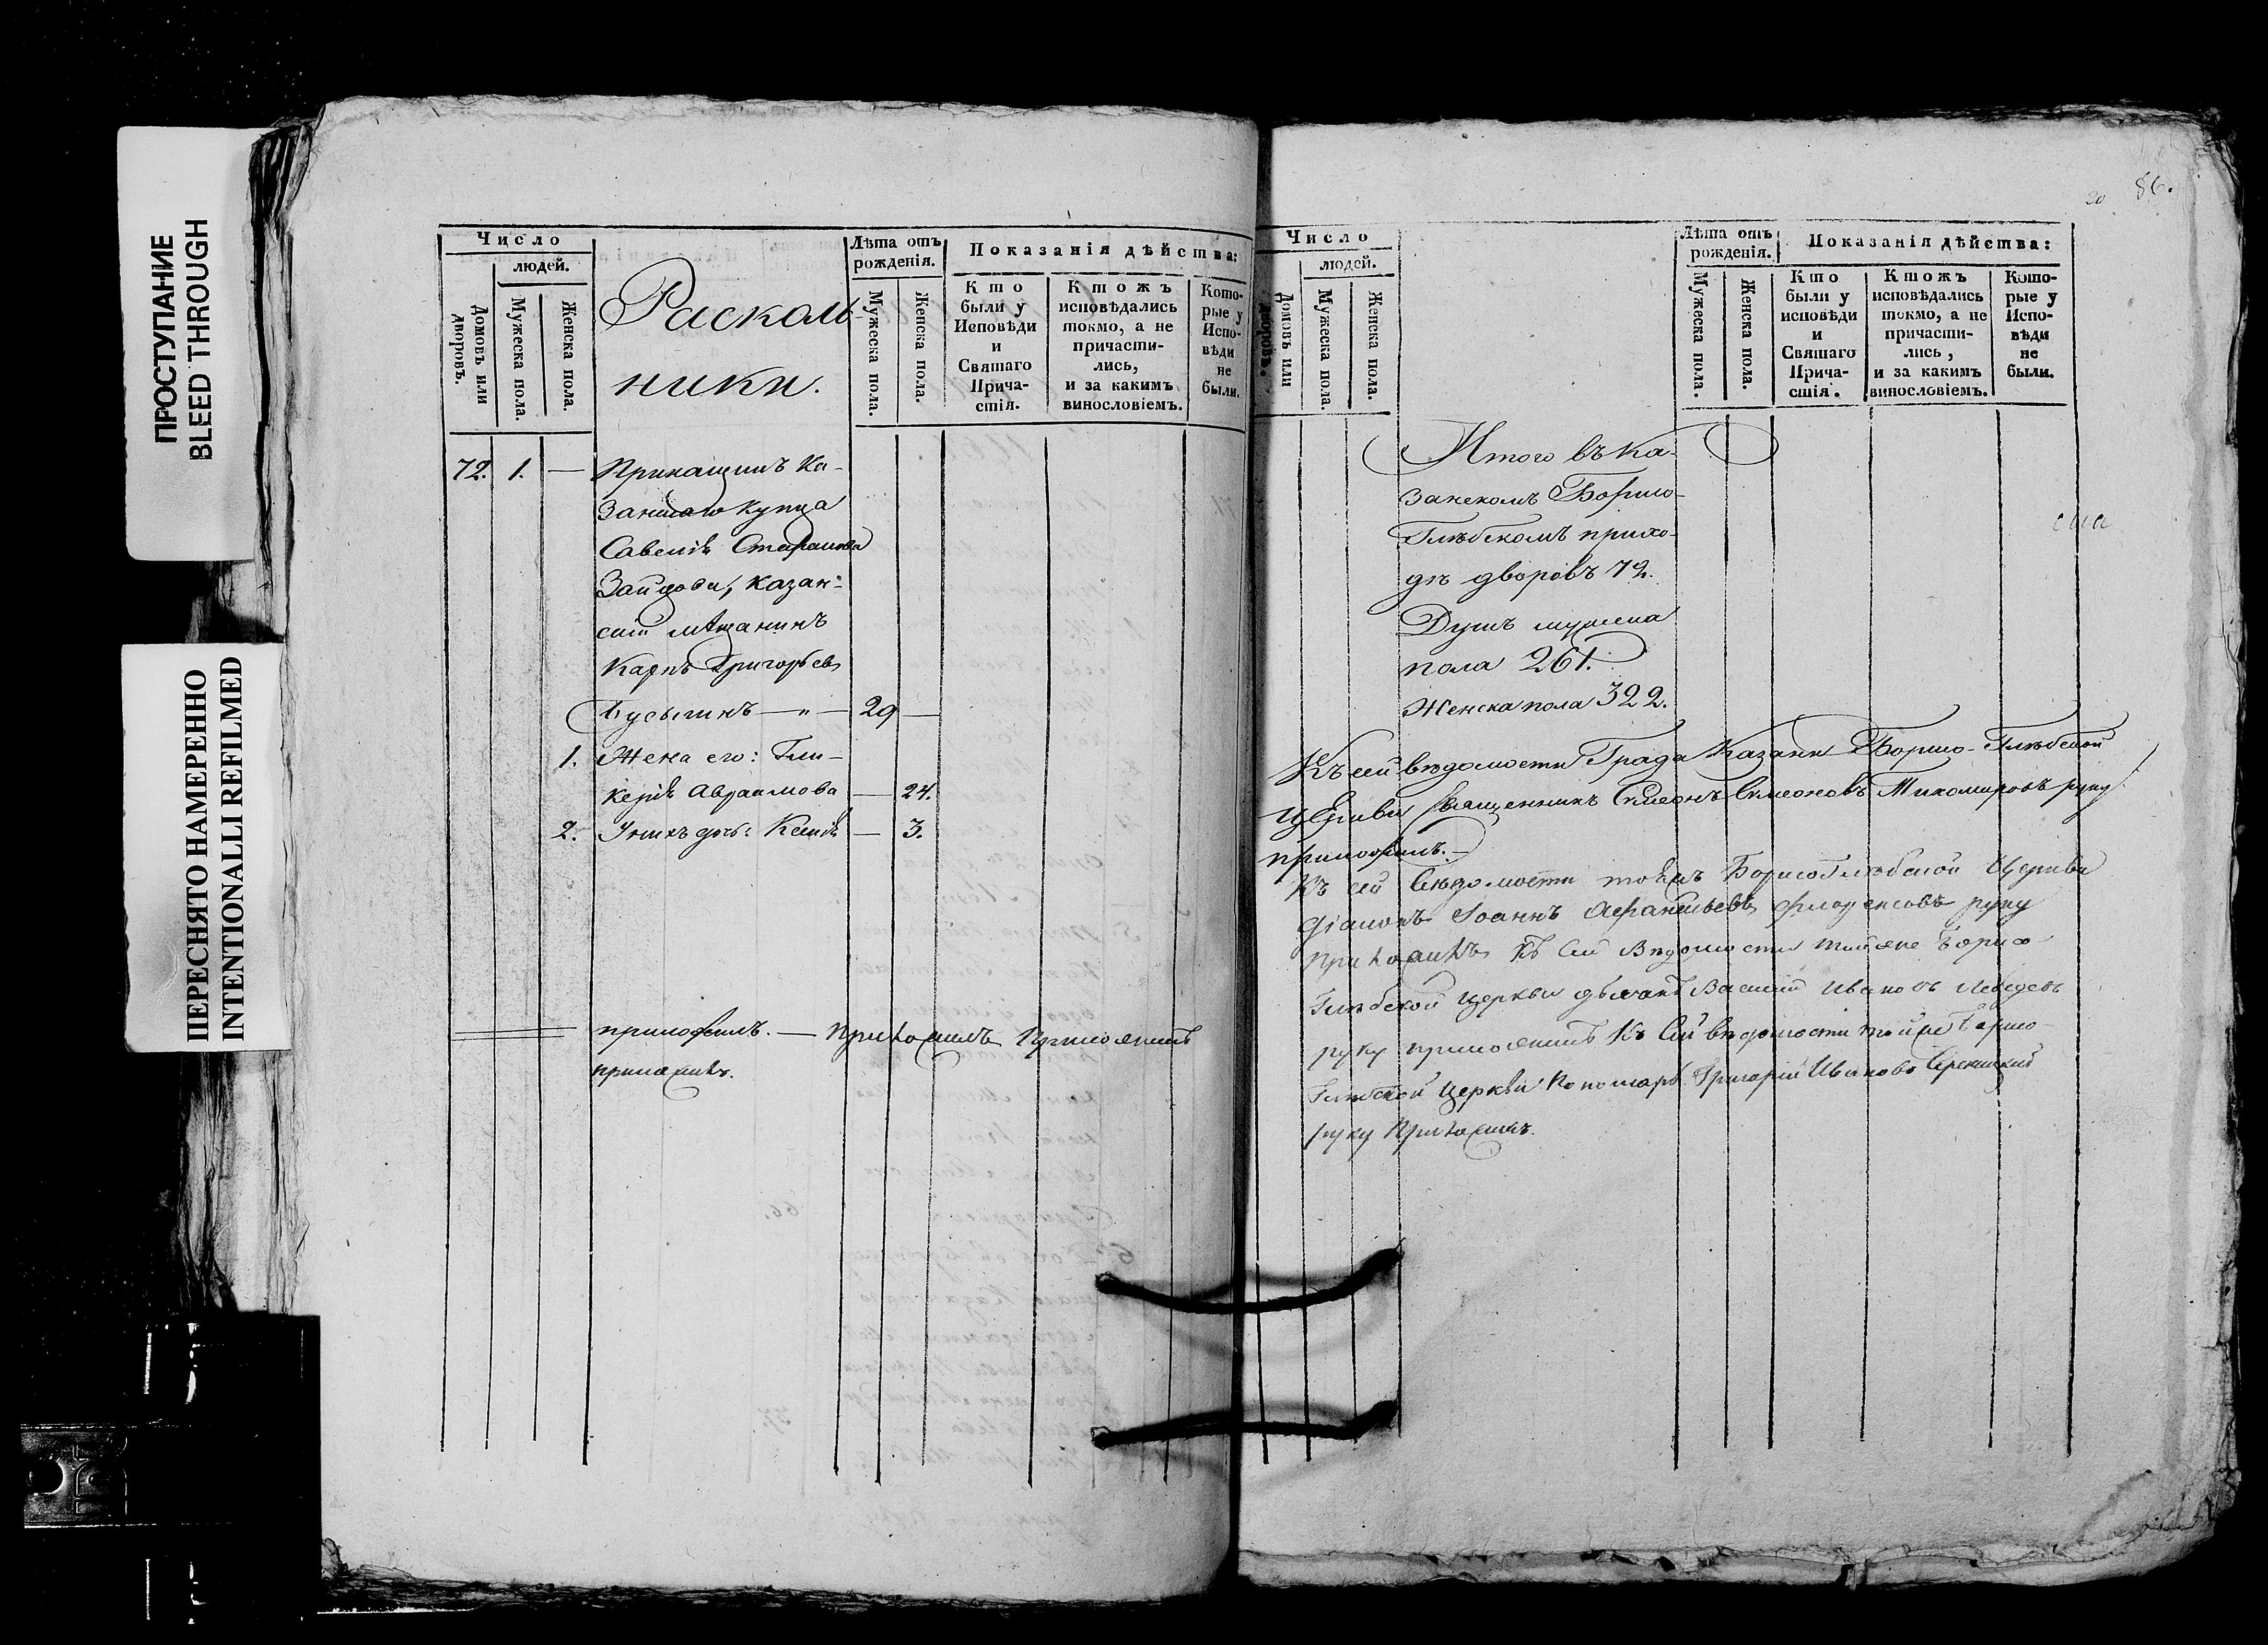 ПРОСТУПАНИЕ
BLEED THROUGH
ПЕРЕСНЯТО НАМЕРЕННО
INTENTIONALLI REFILMED
Число
людей.
Домовъ или дворовъ.
Мужеска пола.
Женска пола.
Расколь-
ники.
Лѣта отъ
рожденія.
Мужеска пола.
Женска пола.
Показанія дѣйства:
Кто
были у
Исповѣди
и
Святаго
Прича-
стія.
Ктожъ
исповѣдались
токмо, а не
причасти-
лись,
и за какимъ
винословіемъ.
Кото-
рые у
Испо-
вѣди
не
были.
72. 1. — Прикащикъ Ка-
занскаго купца
Савелія Стефанова
Зайцова, казан-
скій мѣщанинъ
Карпъ Григорьевъ
Бусыгинъ — „ — 29 —
1. Жена его: Гли-
керія Авраамова — 24.
2. У нихъ дочь: Ксенія — 3.
приложилъ. — Приложилъ Приложилъ
приложилъ.
86.
Число
людей.
Домовъ или дворовъ.
Мужеска пола.
Женска пола.
Лѣта отъ
рожденія.
Мужеска пола.
Женска пола.
Показанія дѣйства:
Кто
были у
исповѣди
и
Святаго
Прича-
стія.
Ктожъ
исповѣдались
токмо, а не
причасти-
лись,
и за какимъ
винословіемъ.
Кото-
рые у
Испо-
вѣди
не
были.
Итого въ Ка-
занскомъ Борисо-
Глѣбскомъ прихо-
дѣ дворовъ 72.
Душъ мужеска
пола 261.
Женска пола 322.
Къ сей вѣдомости Града Казани Борисо-Глѣбской
Церкви Священникъ Симеонъ Симеоновъ Тихомировъ руку
приложилъ. —
Къ сей Вѣдомости тояжъ Борисоглѣбской Церкви
Діаконъ Іоаннъ руку
Приложилъ Къ Сей Вѣдомости тойже Борисо-
Глѣбской Церкви дьячокъ Василій Ивановъ Лебедевъ
руку приложилъ Къ Сей вѣдомости тойже Борисо-
Глѣбской Церкви Пономарь Григорій Ивановъ
руку Приложилъ.